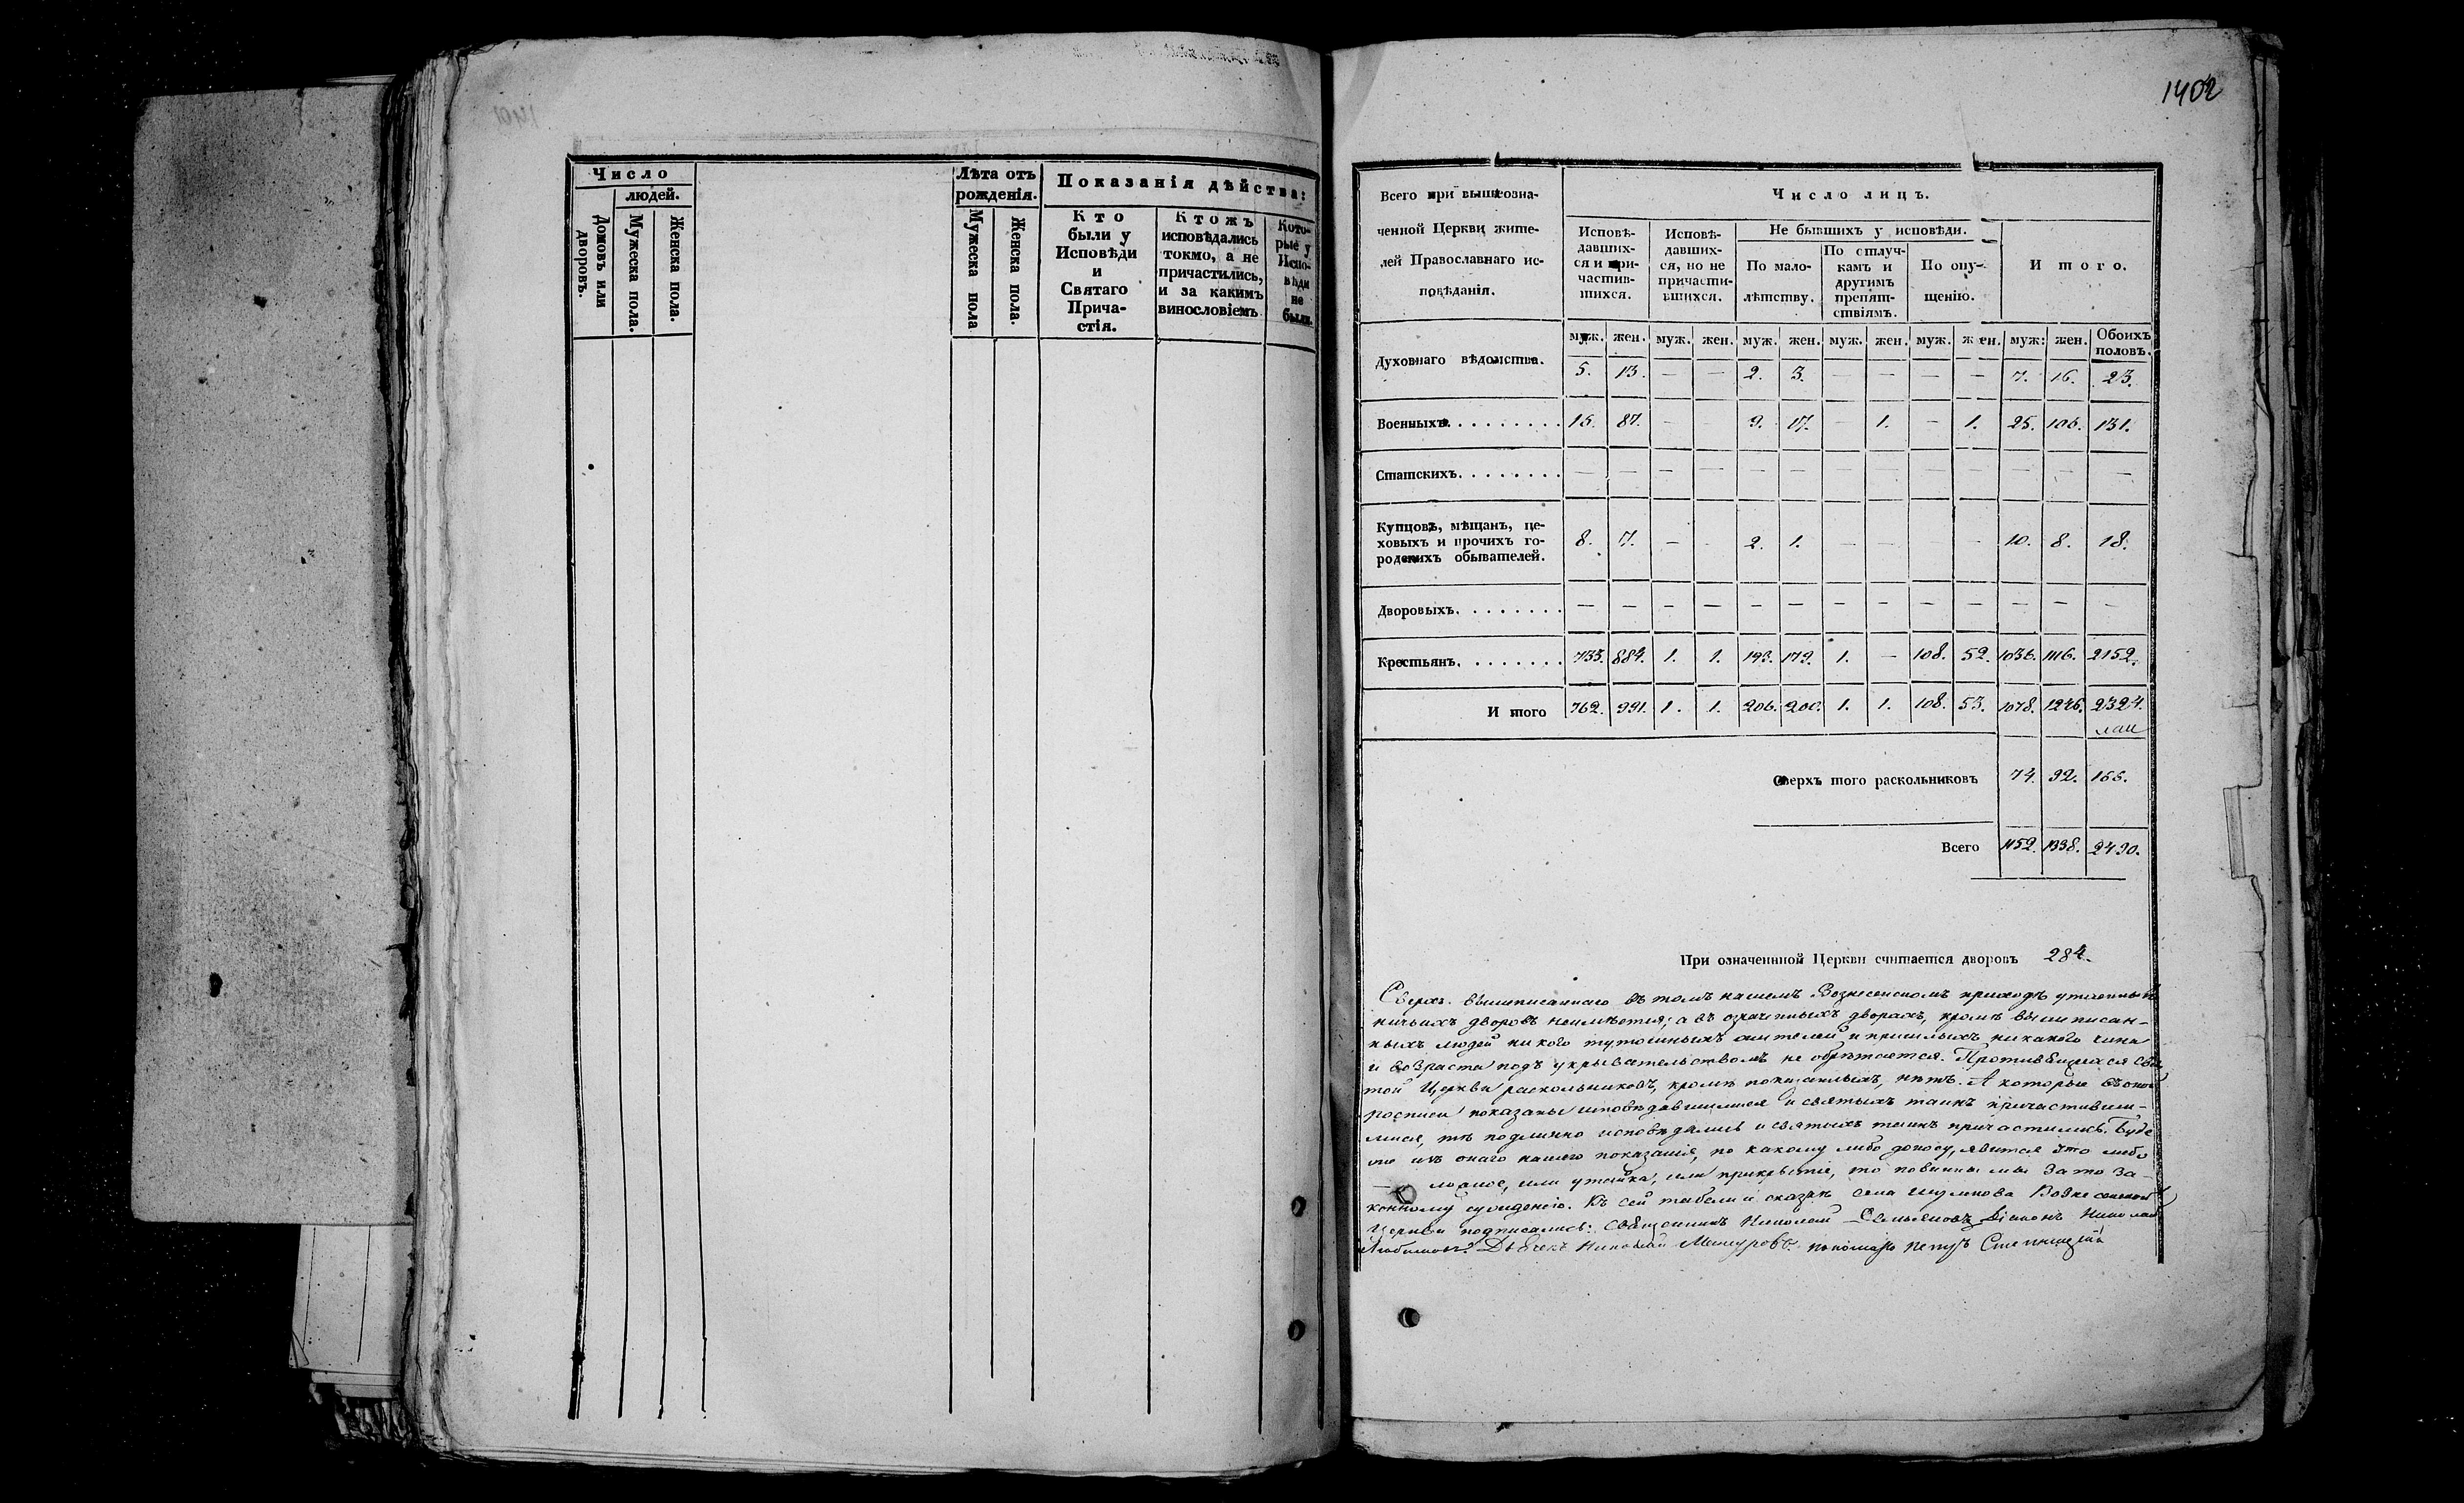 1402
Число
людей.
Домовъ или дворовъ.
Мужеска пола.
Женска пола.
Лѣта отъ
рожденія.
Мужеска пола
Женска пола.
Показанія дѣйства:
Кто
были у
Исповѣди
и
Святаго
Прича-
стія.
Ктожъ
исповѣдались
токмо, а не
причастились,
и за какимъ
винословіемъ
Кото-
рые у
Испо-
вѣди
не
были.
Всего при вышеозна-
ченной Церкви жите-
лей Православнаго ис-
повѣданія.
Число лицъ.
Исповѣ-
давших-
ся и при-
частив-
шихся.
Исповѣ-
давших-
ся, но не
причасти-
вшихся.
Не бывшихъ у исповѣди.
По мало-
лѣтству.
По отлуч-
камъ и
другимъ
препят-
ствіямъ.
По опу-
щенію.
Итого.
муж. жен. муж. жен. муж. жен. муж. жен. муж. жен. муж. жен. Обоихъ половъ.
Духовнаго вѣдомства. 5. 13. — — 2. 3. — — — — 7. 16. 23.
Военныхъ. . . . . . . . . 16. 87. — — 9. 17. — 1. — 1. 25. 106. 131.
Статскихъ. . . . . . . . — — — — — — — — — — — — —
Купцовъ, мѣщанъ, це-
ховыхъ и прочихъ го-
родскихъ обывателей. 8. 7. — — 2. 1. — — — — 10. 8. 18.
Дворовыхъ. . . . . . . . — — — — — — — — — — — — —
Крестьянъ. . . . . . . . 733. 884. 1. 1. 193. 179. 1. — 108. 52. 1036. 1116. 2152.
И того 762. 991. 1. 1. 206. 200. 1. 1. 108. 53. 1078. 1246. 2324.
Сверхъ того раскольниковъ 74. 92. 166.
Всего 1152. 1338. 2490.
При означеннной Церкви считается дворовъ 284.
Сверхъ вышеписаннаго въ томъ нашемъ Вознесенскомъ приходѣ утаенныхъ
ничьихъ дворовъ неимѣется; а въ означенныхъ дворахъ, кромѣ вышеписан-
ныхъ людей никого тутошныхъ жителей и пришлыхъ никакого чина
и возраста подъ укрывательствомъ не обрѣтается. Противящихся Свя
той Церкви раскольниковъ, кромѣ показанныхъ, нѣтъ. А которые въ оной
росписи показаны исповѣдавшимися и святыхъ таинъ причастивши-
мися, тѣ подлинно исповѣдались и святыхъ таинъ причастились. Буде
изъ онаго нашего показанія, по какому либо доносу, явится что либо
ложное, или утайка, или прикрытіе, то повинны мы за то за-
конному сужденію. Къ сей табели и сказкѣ села Вознесенской
Церкви подписались: Священникъ Николай Діаконъ Николай
Любимовъ. Дьячекъ Николай пономарь Петръ